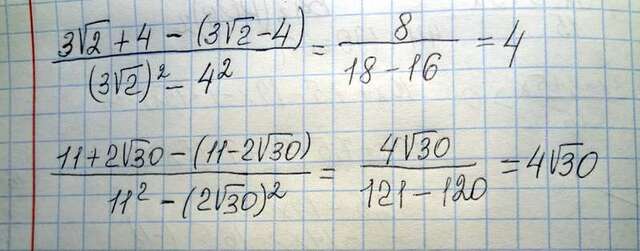 (3√2 + 4 − (3√2 − 4)) / ((3√2)² − 4²) = 8 / (18 − 16) = 4
(11 + 2√30 − (11 − 2√30)) / (11² − (2√30)²) = 4√30 / (121 − 120) = 4√30